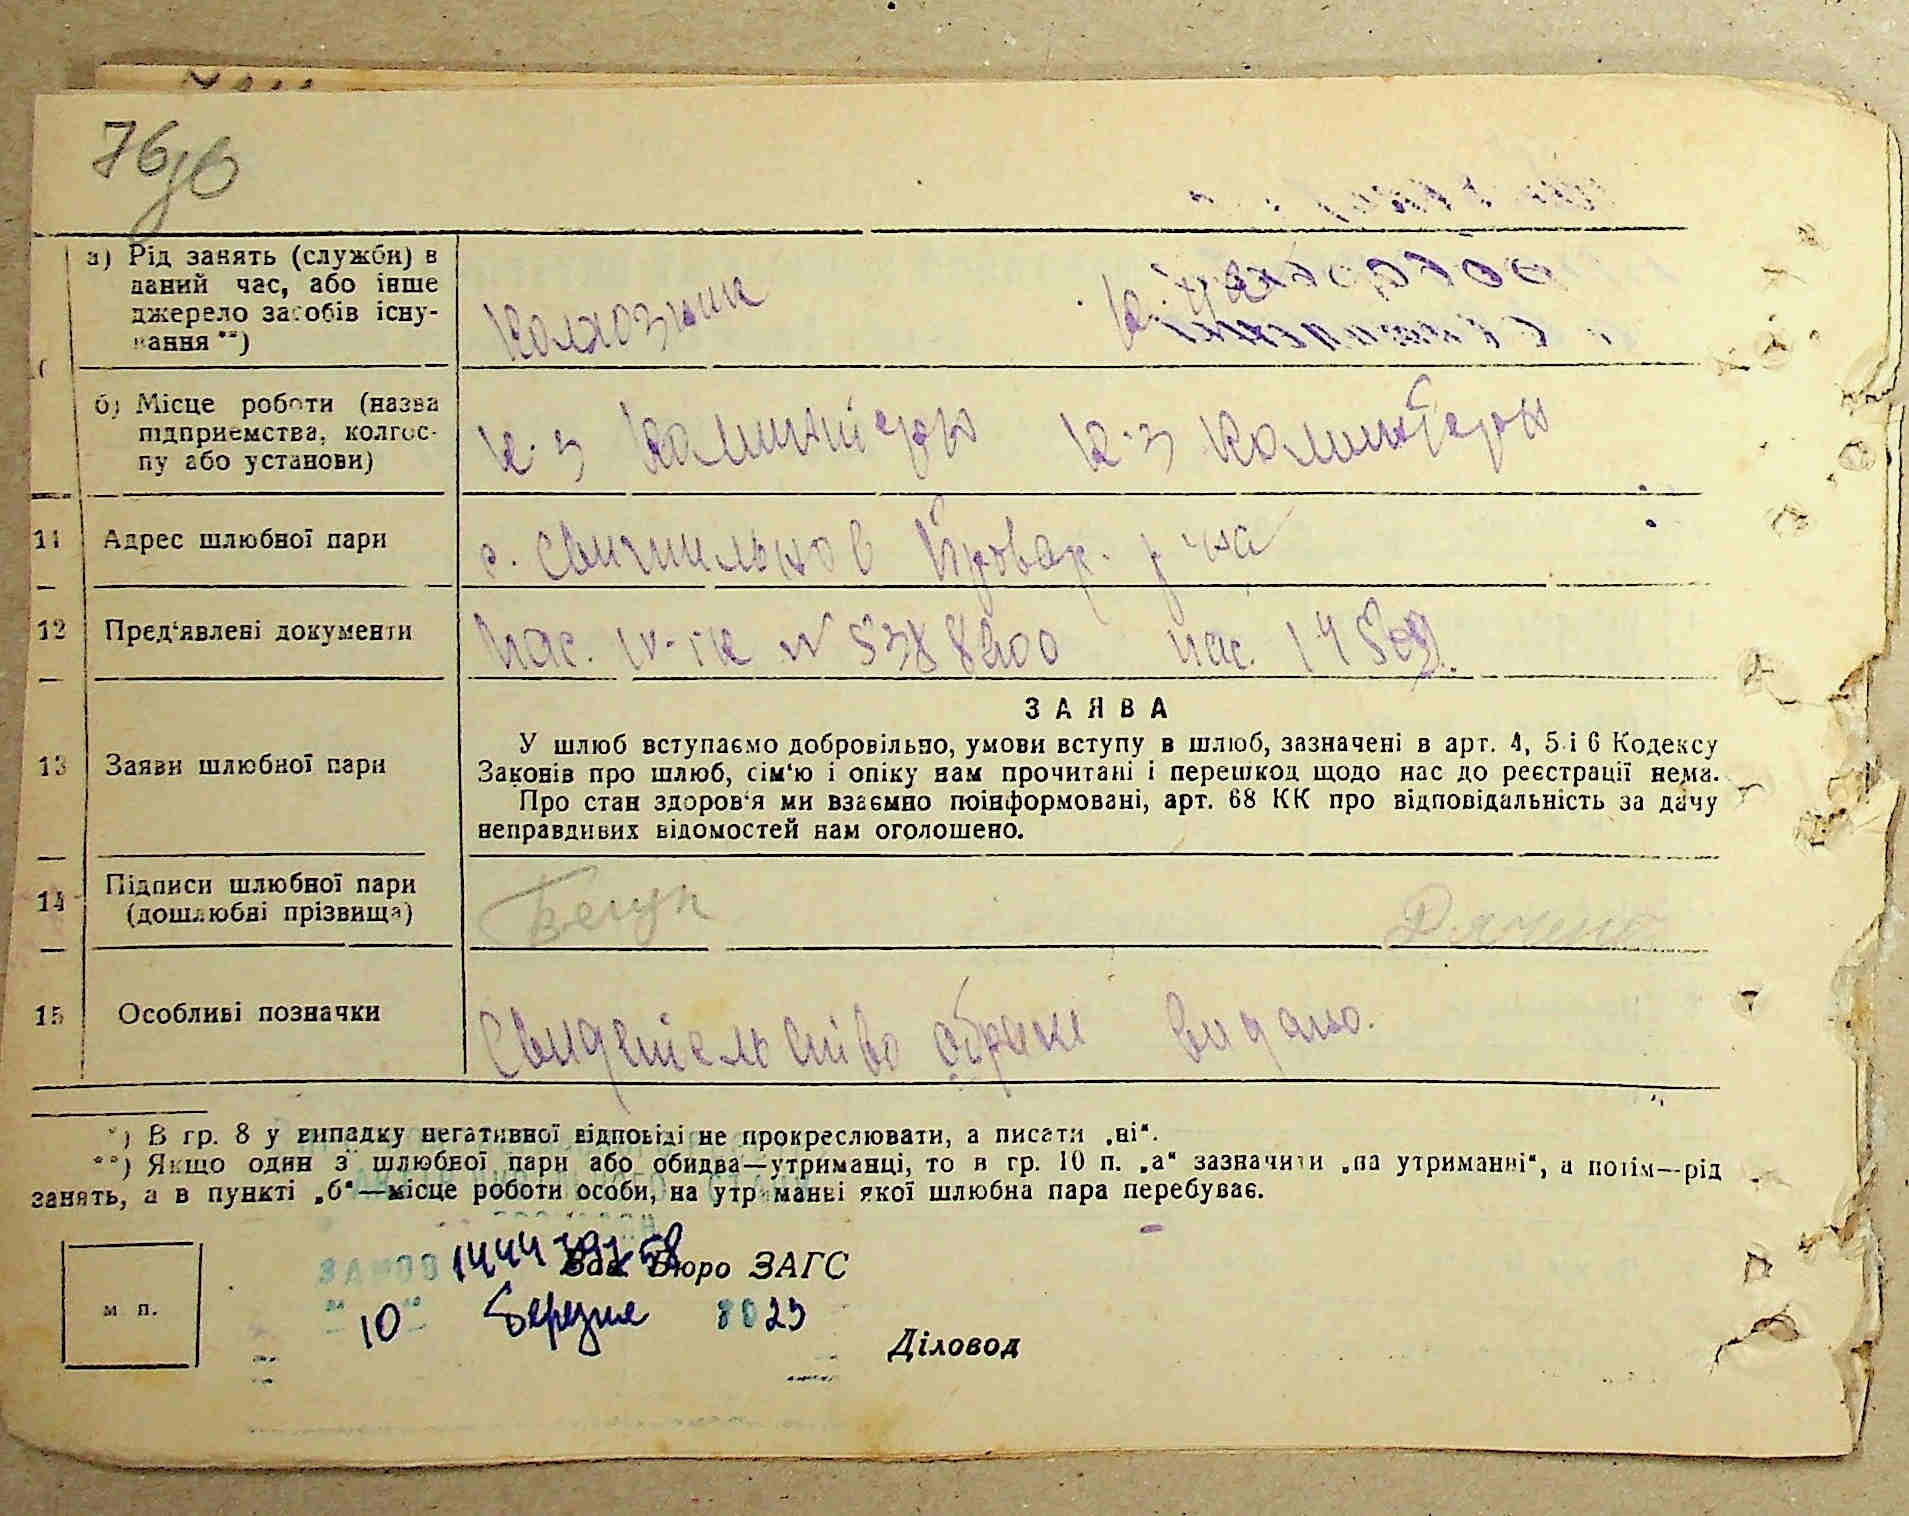 76зв
а) Рід занять (служби) в
даний час, або інше
джерело засобів існу-
вання **)
Колхозник
б) Місце роботи (назва
підприємства, колгос-
пу або установи)
к-з Комінтерн к-з Комінтерн
11 Адрес шлюбної пари
с. Світильнов Бровар. р-на
12 Пред'явлені документи
пас. № 5388200 пас.
ЗАЯВА
13 Заяви шлюбної пари
У шлюб вступаємо добровільно, умови вступу в шлюб, зазначені в арт. 4, 5 і 6 Кодексу
Законів про шлюб, сім'ю і опіку нам прочитані і перешкод щодо нас до реєстрації нема.
Про стан здоров'я ми взаємно поінформовані, арт. 68 КК про відповідальність за дачу
неправдивих відомостей нам оголошено.
14 Підписи шлюбної пари
(дошлюбні прізвища)
15 Особливі позначки
Свидетельство о браке видано.
*) В гр. 8 у випадку негативної відповіді не прокреслювати, а писати „ні“.
**) Якщо один з шлюбної пари або обидва—утриманці, то в гр. 10 п. „а“ зазначити „на утриманні“, а потім—рід
занять, а в пункті „б“—місце роботи особи, на утриманні якої шлюбна пара перебуває.
Зав. Бюро ЗАГС
м п.
10 березня
Діловод